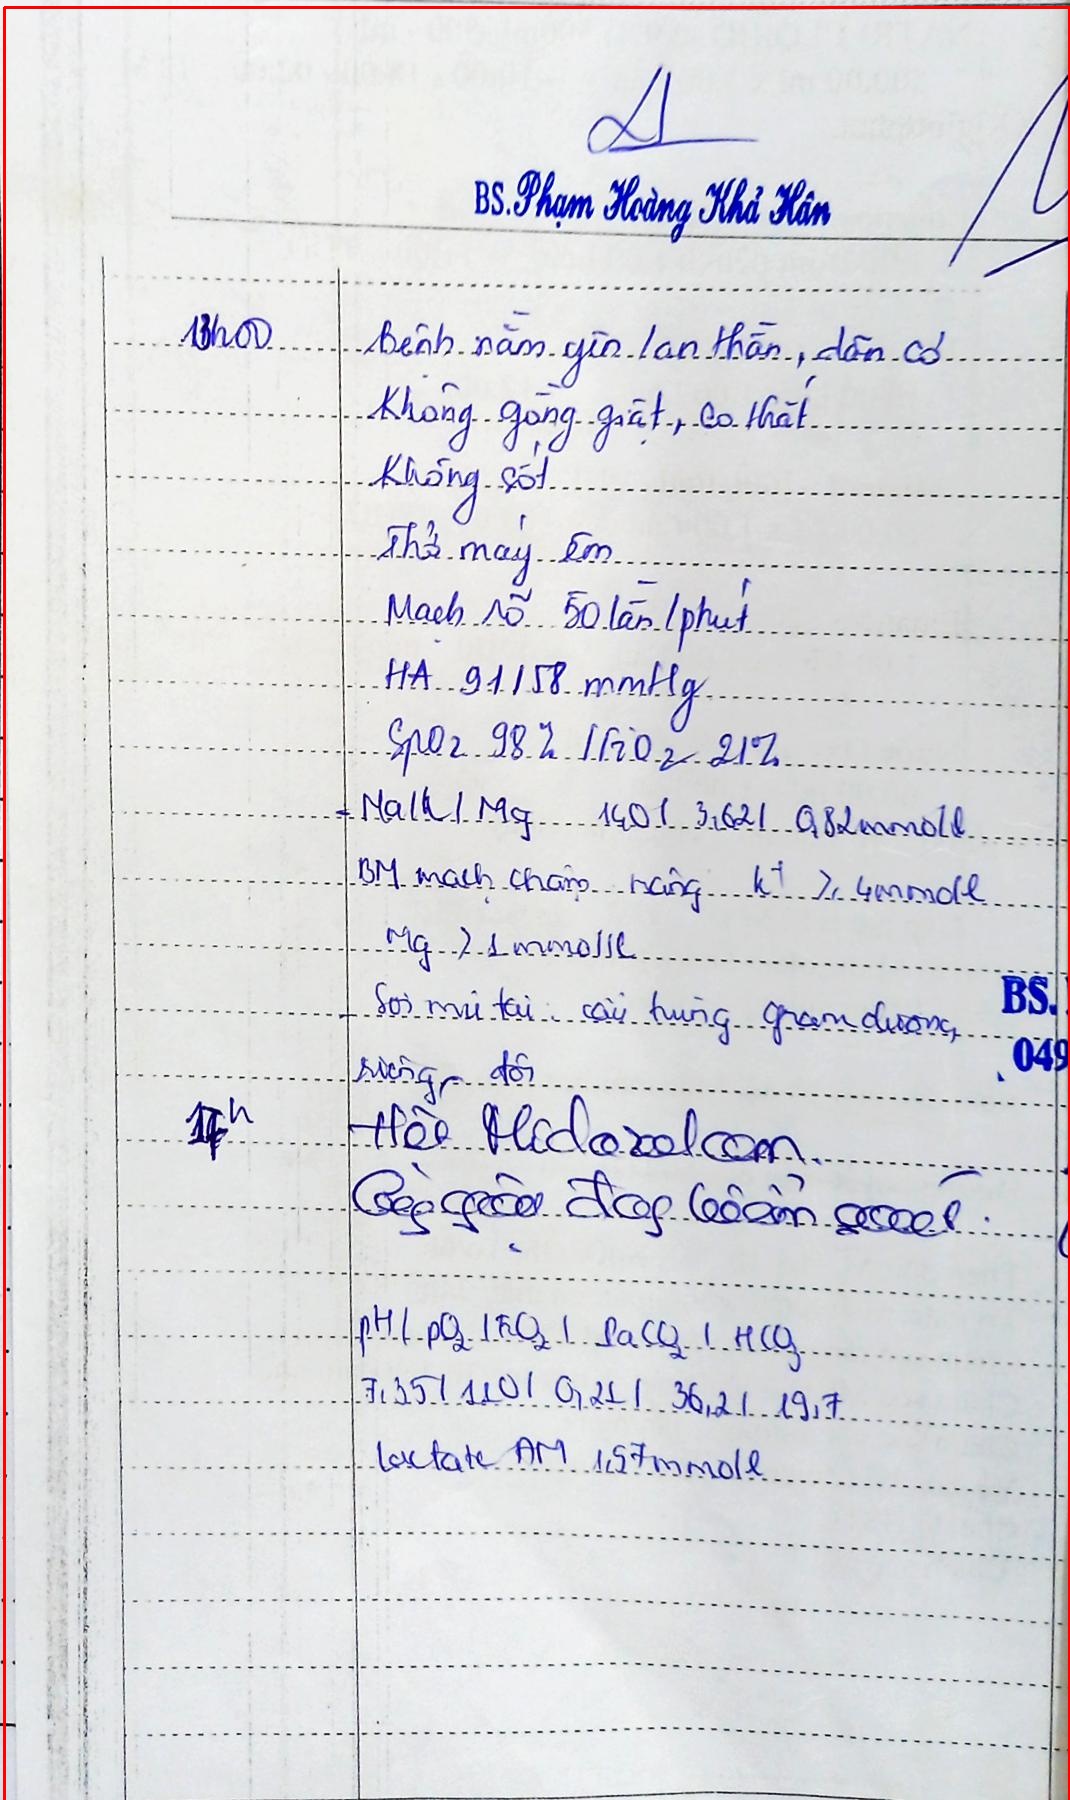 BS. Phạm Hoàng Khả Hân
13h00
Bệnh nằm yên / an thần, dãn cơ
Không gồng giật, co thắt
Không sốt
Thở máy êm
Mạch rõ 50 lần / phút
HA 91/58 mmHg
SpO2 98% / FiO2 21%
- Na/K/Mg 140/ 3,62/ 0,82 mmol/l
BN mạch chậm nâng K+ ≥ 4mmol/l
Mg > 1mmol/l
BS.
- Soi mủ tai: cầu trùng gram dương,
049
riêng, đôi
17h
Hết Midazolam.
pH/ pO2 / FiO2 / PaCO2 / HCO3
7,35/ 110/ 0,21/ 36,2/ 19,7
lactate ĐM 1,57mmol/l